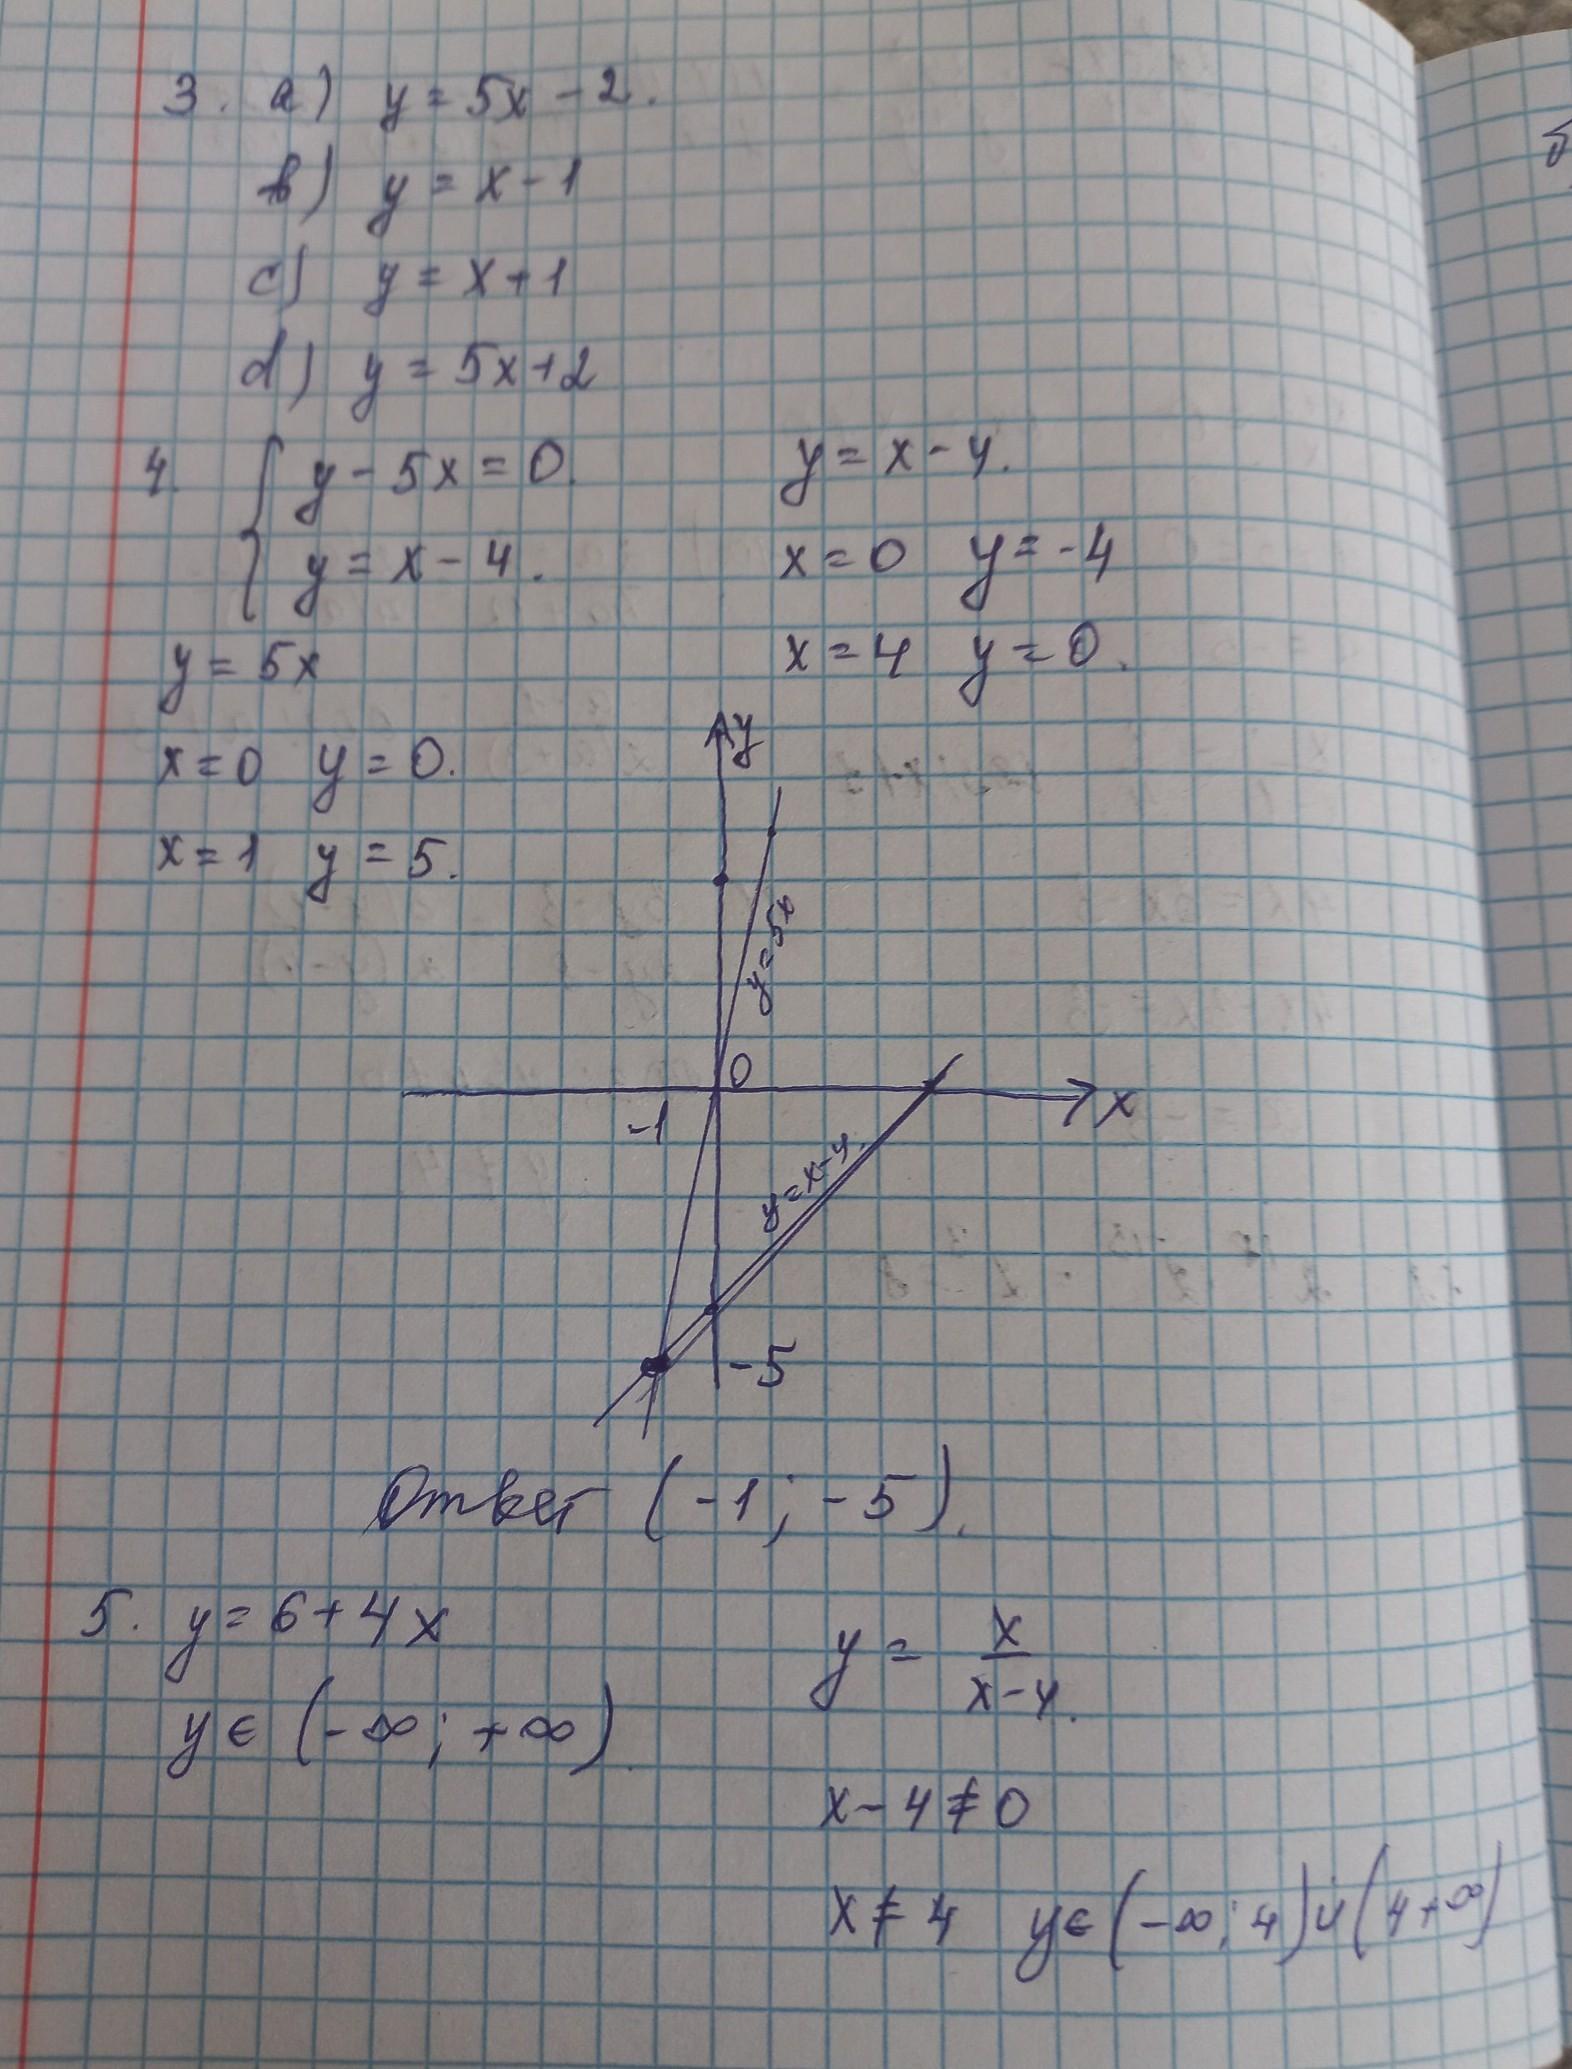 3. a) y = 5x - 2.
b) y = x - 1
c) y = x + 1
d) y = 5x + 2
4. { y - 5x = 0.
y = x - 4.
y = 5x
x = 0 y = 0.
x = 1 y = 5.
y = x - 4.
x = 0 y = -4
x = 4 y = 0.
y
y = 5x
0
-1
x
y = x - 4.
-5
Ответ (-1; -5).
5. y = 6 + 4x
y ∈ (-∞; +∞).
y = x/(x - 4).
x - 4 ≠ 0
x ≠ 4 y ∈ (-∞; 4) ∪ (4 +∞)